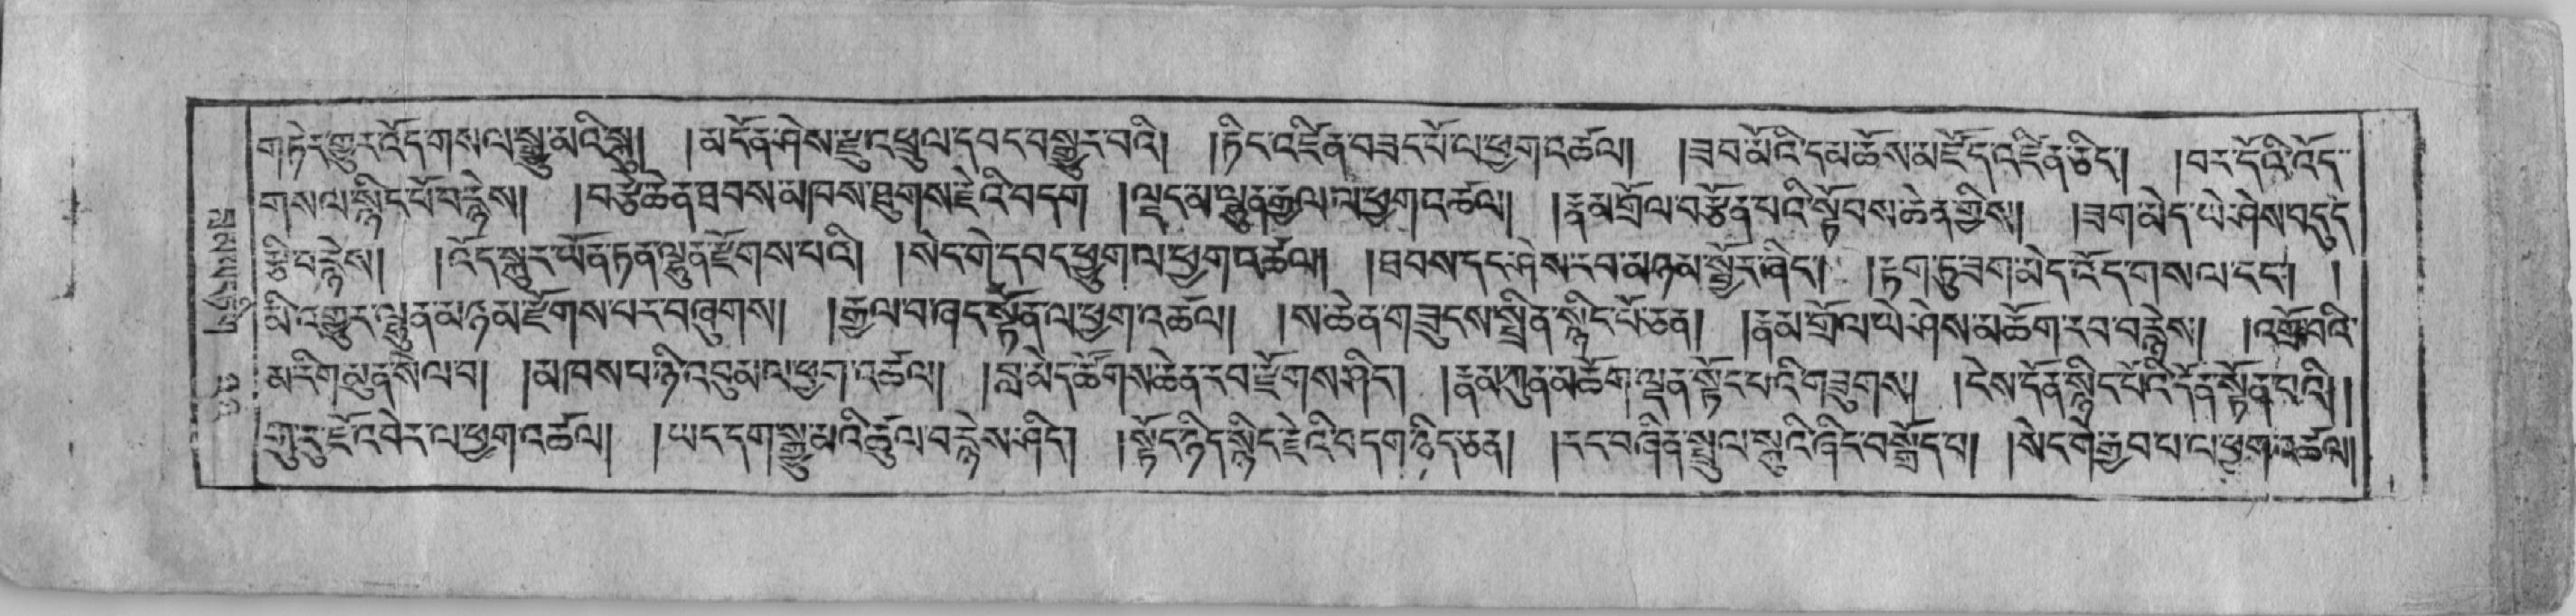 གཏེར་གྱུར་འོད་གསལ་སྒྱུ་མའི་སྐུ། །མངོན་ཤེས་རྫུ་འཕྲུལ་དབང་བསྒྱུར་བའི། །ཏིང་འཛིན་བཟང་པོ་ལ་ཕྱག་འཚལ། །ཟབ་མོའི་དམ་ཆོས་མཛོད་འཛིན་ཅིང་། །བར་དོའི་འོད་
གསལ་སྙིང་པོ་བརྙེས། །བརྩེ་ཆེན་ཐབས་མཁས་ཐུགས་རྗེའི་བདག །ལྡན་མ་ལྷུན་རྒྱལ་ལ་ཕྱག་འཚལ། །རྣམ་གྲོལ་བརྩོན་པའི་སྟོབས་ཆེན་གྱིས། །ཟག་མེད་ཡེ་ཤེས་བདུད་
རྩི་བརྙེས། །འོད་སྐུར་ཡོན་ཏན་ལྷུན་རྫོགས་པའི། །སེང་གེ་དབང་ཕྱུག་ལ་ཕྱག་འཚལ། །ཐབས་དང་ཤེས་རབ་མཉམ་སྦྱོར་ཞིང་། །རྟག་ཏུ་ཟག་མེད་འོད་གསལ་དང་། །
མི་འགྱུར་ལྷུན་མཉམ་རྫོགས་པར་བཞུགས། །རྒྱལ་བ་ཞང་སྟོན་ལ་ཕྱག་འཚལ། །ས་ཆེན་གཟུངས་སྤྲིན་སྙིང་པོ་ཅན། །རྣམ་གྲོལ་ཡེ་ཤེས་མཆོག་རབ་བརྙེས། །འགྲོ་བའི་
མ་རིག་མུན་སེལ་བ། །མཁས་པ་ཉི་འབུམ་ལ་ཕྱག་འཚལ། །བླ་མེད་ཚོགས་ཆེན་རབ་རྫོགས་ཤིང་། །རྣམ་ཀུན་མཆོག་ལྡན་སྟོང་པའི་གཟུགས། །ངེས་དོན་སྙིང་པོའི་དོན་སྟོན་པའི། །
གུ་རུ་ཇོ་འབེར་ལ་ཕྱག་འཚལ། །ཡང་དག་སྒྱུ་མའི་ཚུལ་བརྙེས་ཤིང་། །སྟོང་ཉིད་སྙིང་རྗེའི་བདག་ཉིད་ཅན། །རང་བཞིན་སྤྲུལ་སྐུའི་ཞིང་བསྒྲོད་པ། །སེང་གེ་རྒྱབ་པ་ལ་ཕྱག་འཚལ།